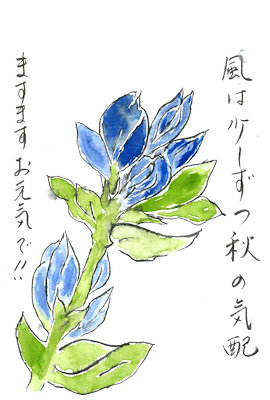 風は少しずつ秋の気配
ますますお元気で!!